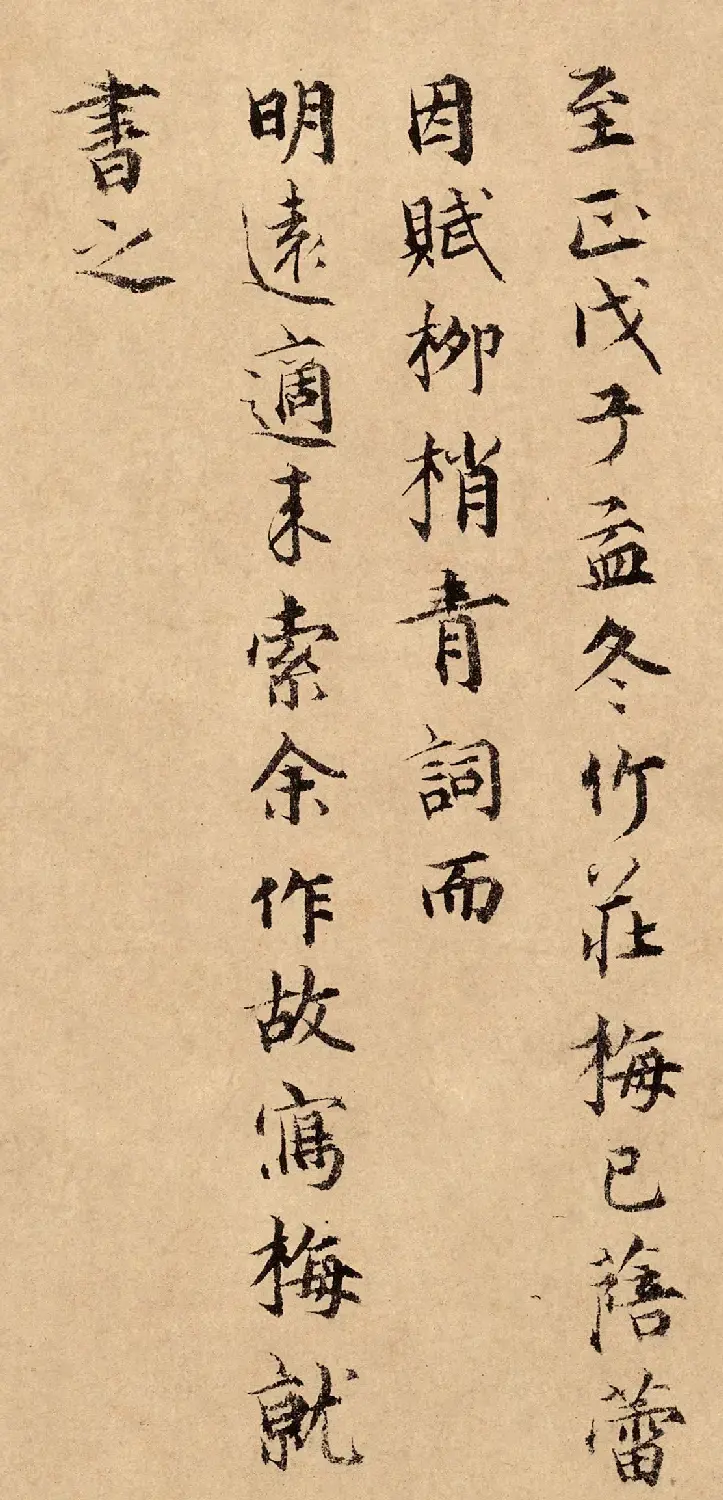 至正戊子孟冬竹莊梅已蓓蕾
因賦柳梢青詞而
明遠適來索余作故寫梅就
書之